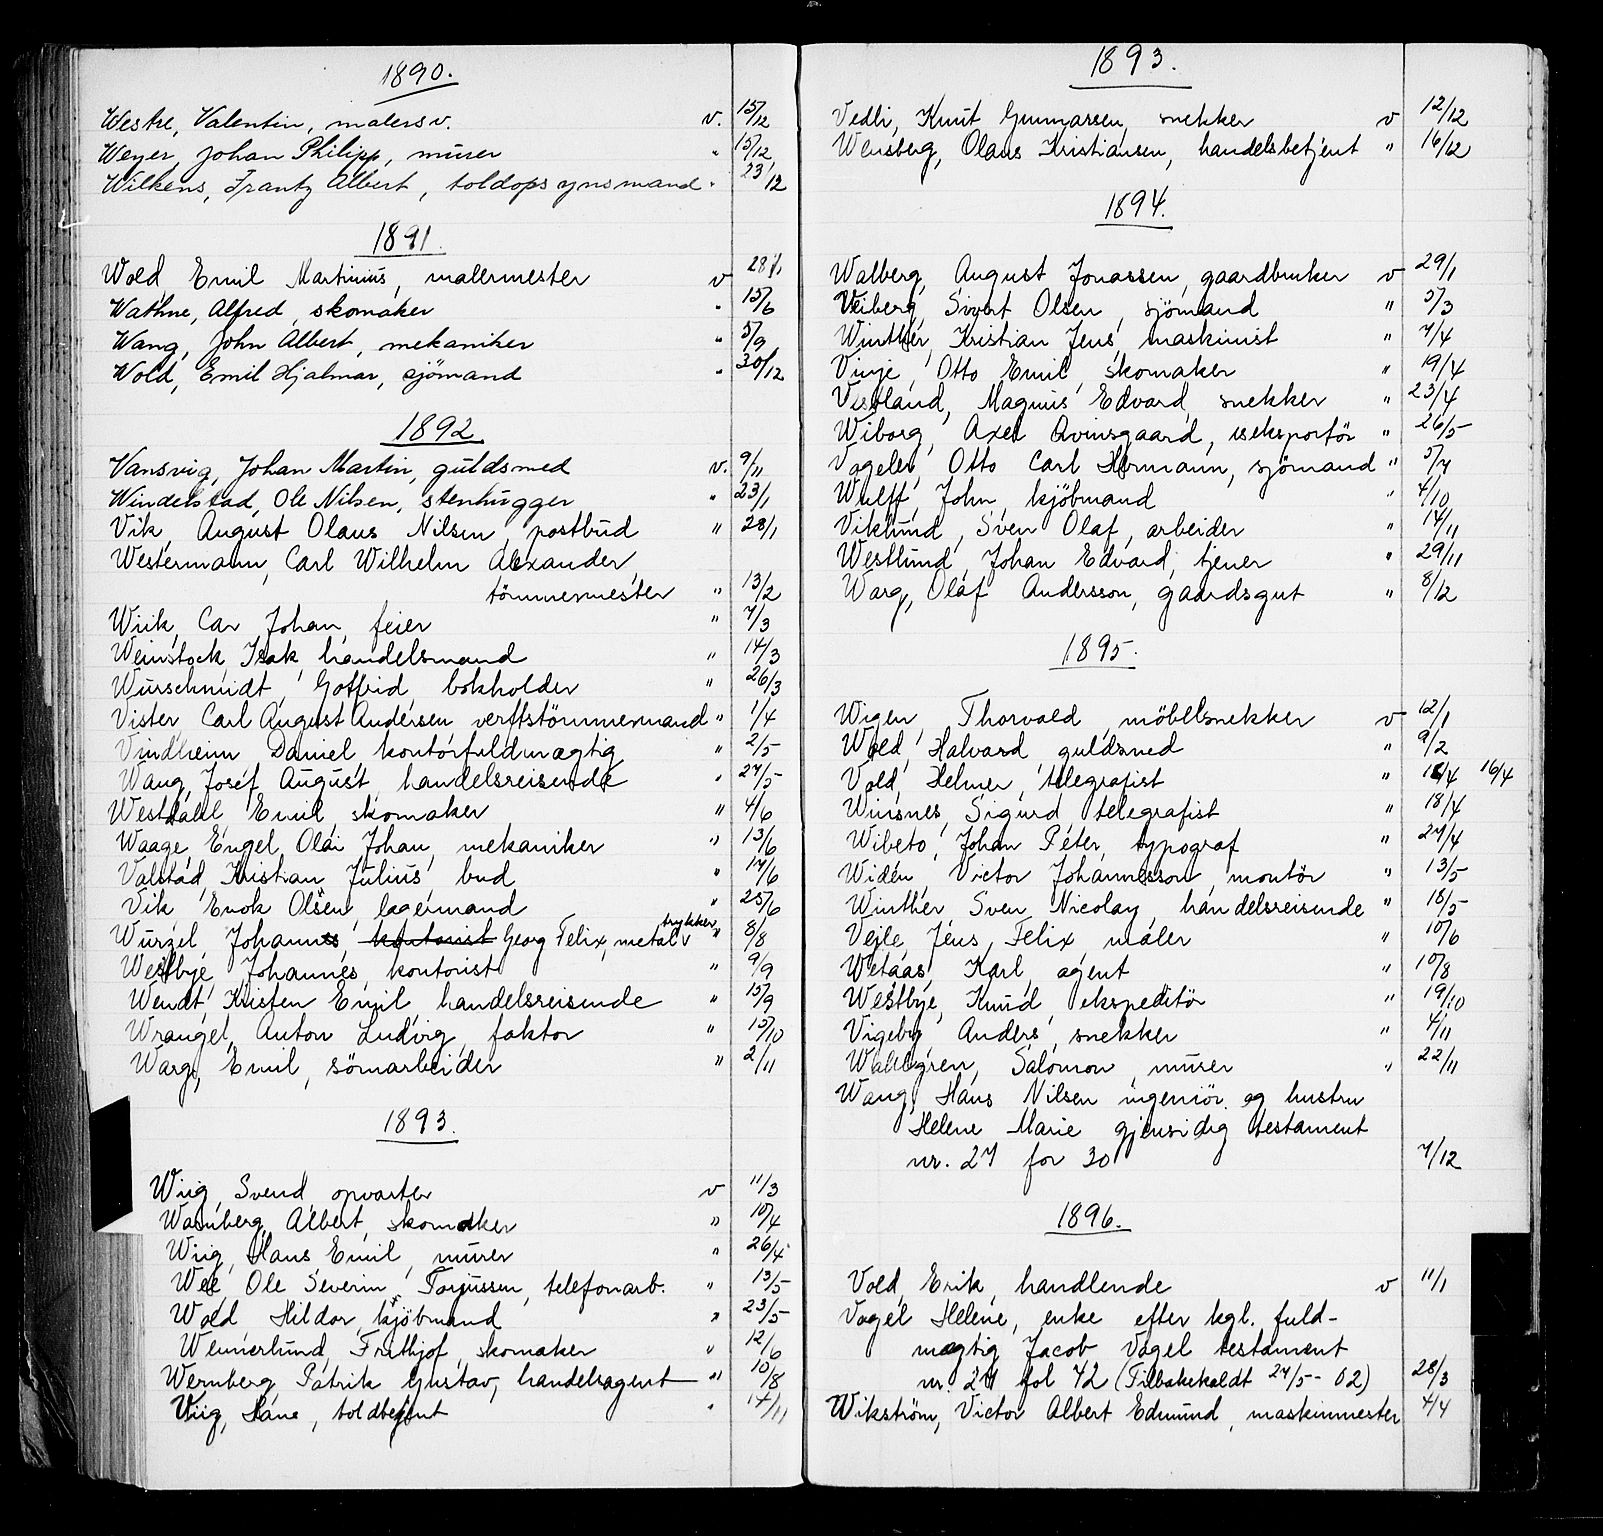 1890.
Westre, Valentin, malersv. v. 15/12
Weyer, Johan Philipp, murer " 15/12
Wilkens, Frantz Albert, toldopsynsmand " 23/12
1891.
Wold, Emil Martinius, malermester v 28/1
Wathne, Alfred, skomaker " 15/6
Wang, John Albert, mekaniker " 5/9
Wold, Emil Hjalmar, sjömand " 30/12
1892
Vansvig, Johan Martin, guldsmed v. 9/11
Windelstad, Ole Nilsen, stenhugger " 23/1
Vik, August Olaus Nilsen, postbud " 28/1
Westermann, Carl Wilhelm Alexander,
tömmermester " 13/2
Wiik, Car Johan, feier " 7/3
Weinstock, Isak, handelsmand " 14/3
Wurschmidt, Gotfrid, bokholder " 26/3
Vister Carl August Andersen verftstömmermand " 1/4
Vindheim Daniel, kontorfuldmægtig " 2/5
Wang, Josef August, handelsreisende " 27/5
Westdahl Emil, skomaker " 4/6
Waage, Engel Olai Johan, mekaniker " 13/6
Valstad, Kristian Julius bud " 17/6
Vik, Enok Olsen, lagermand " 25/6
Wurzel, Johannes kontorist Georg Felix, metaltrykker " 8/8
Westbye, Johannes, kontorist " 9/9
Wendt, Kristen Emil, handelsreisende " 15/9
Wrangel, Anton Ludvig, faktor " 15/10
Warg, Emil, sömarbeider " 2/11
1893.
Wiig, Svend, opvarter v 11/3
Warnberg, Albert, skomaker " 10/4
Wiig, Hans Emil, murer " 26/4
Wee, Ole Severin Torjussen, telefonarb. " 13/5
Wold Hildor, kjöbmand " 23/5
Wennerlund, Frithjof, skomaker " 12/6
Wernberg Patrik Gustav, handelsagent " 10/8
Viig, Hans, toldbetjent " 14/11
1893.
Vedli, Knut Gunnarsen, snekker v 12/12
Wensberg, Olaus Kristiansen, handelsbetjent " 16/12
1894.
Walberg, August Jonassen, gaardbruker v 29/1
Veiberg, Sivert Olsen, sjömand " 5/3
Winther, Kristian Jens, maskinist " 7/4
Vinje, Otto Emil, skomaker " 19/4
Vestland, Magnus Edvard, snekker " 23/4
Wiborg, Axel Qvinsgaard, iseksportör " 26/5
Vogeler, Otto Carl Hermann, sjömand " 5/7
Wulff, John, kjöbmand " 4/10
Viklund, Sven Olaf, arbeider " 14/11
Westlund, Johan Edvard, tjener " 29/11
Warg, Olaf Andersson, gaardsgut " 8/12
1895.
Wigen, Thorvald, möbelsnekker v 12/1
Wold, Halvard, guldsmed " 9/2
Vold, Helmer, telegrafist " 16/4 16/4
Winsnes, Sigurd telegrafist " 18/4
Wibeto, Johan Peter, typograf " 27/4
Widén, Victor Johannesson, montör " 13/5
Winther, Sven Nicolay, handelsreisende " 18/5
Vejle, Jens Felix, maler " 10/6
Wetaas, Karl, agent " 10/8
Westbye, Knud, ekspeditör " 19/10
Vigeby, Anders, snekker " 4/11
Wahlgren, Salomon, murer " 22/11
Wang, Hans Nilsen ingeniör og hustru
Helene Marie gjensidig testament
nr. 27 for 30 7/12
1896.
Vold, Erik, handlende v 11/1
Vogel Helene, enke efter kgl. fuld-
mægtig Jacob Vogel testament
nr. 27 fol 42 (Tilbakekaldt 24/5-02) 28/3
Wikström, Victor Albert Edmund, maskinmester 4/4